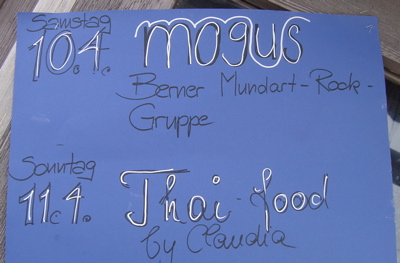 Samstag
10.4. mogus
Berner Mundart-Rock-
Gruppe
Sonntag
11.4. Thai-food
by Claudia